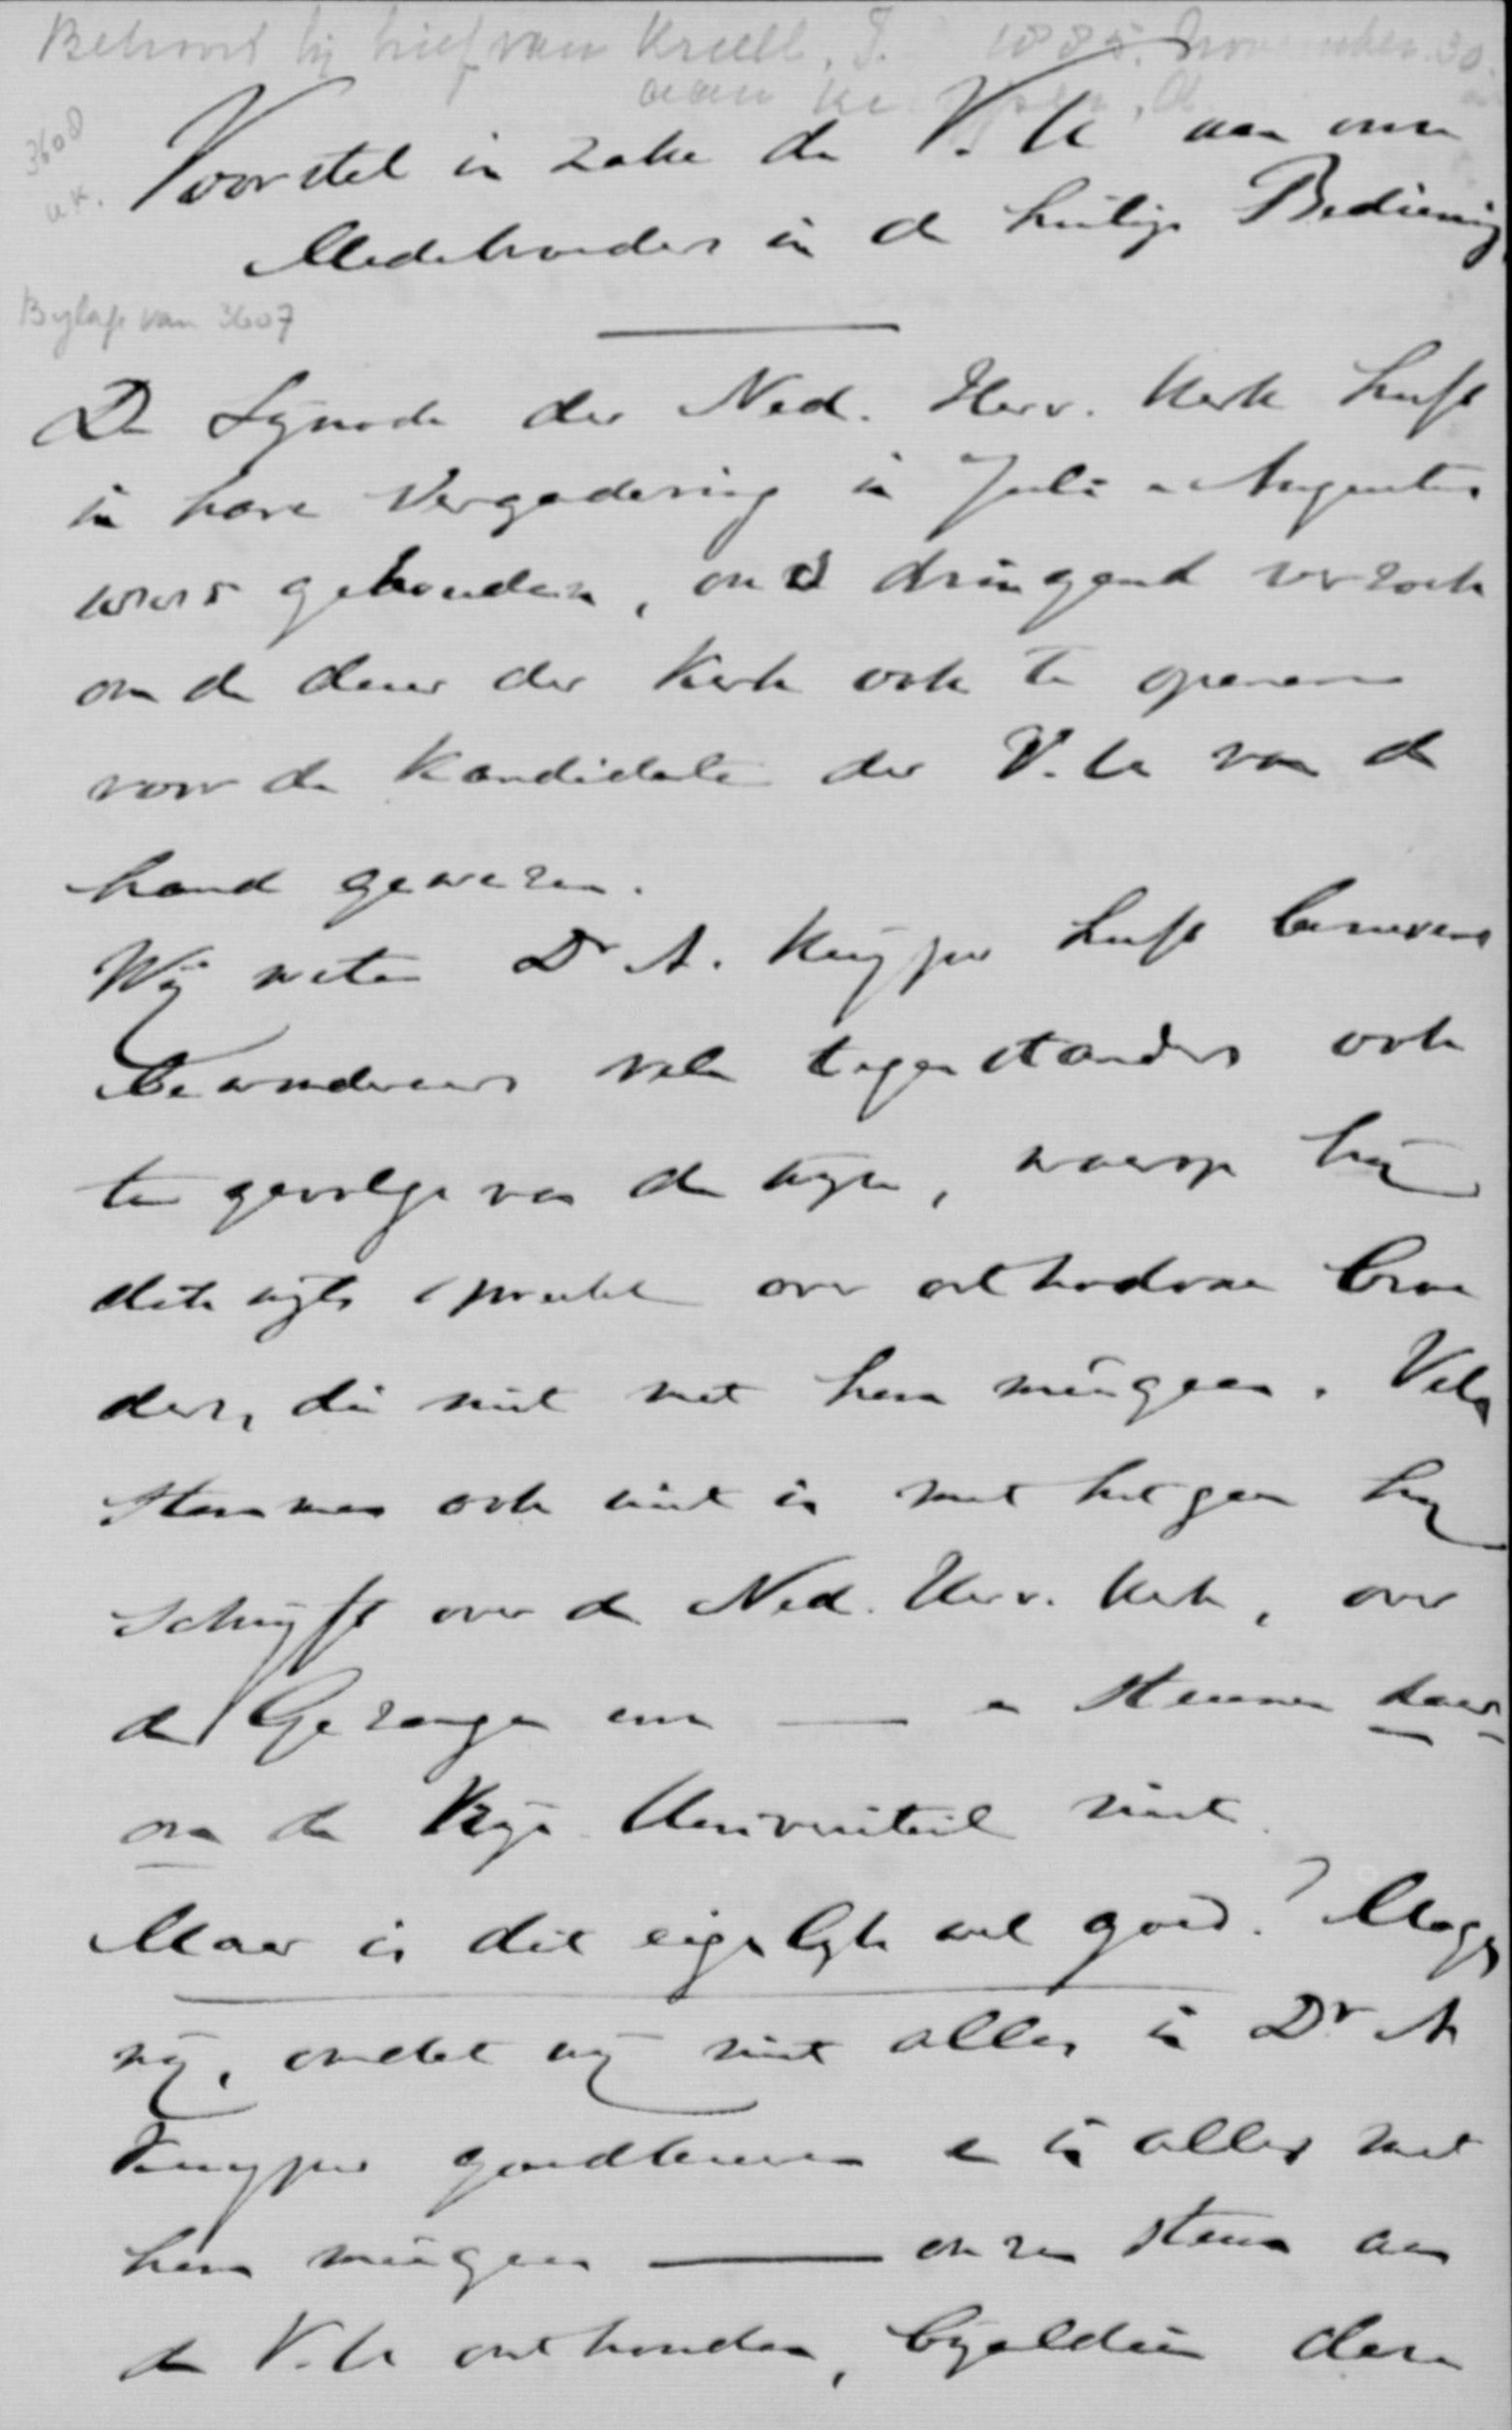 Behoort bij brief van Kruell, J. 1885. November. 30.
aan Kuyper, A.
3608
Voorstel in zake de V.U. aan onze
Medebroeders in de heilige Bediening
Bylage van 3607
De Synode der Ned. Herv. Kerk heeft
in hare Vergadering in Juli en Augustus
gehouden, ons dringend verzoek
om de deur der Kerk ook te openen
voor de Kandidaten der V.U. van de
hand gewezen.
Wij weten Dr A. Kuyper heeft benevens
bewonderaars vele tegenstanders ook
ten gevolge van de wyze, waarop hij
dikwyls spreekt over orthodoxe broe
ders, die niet met hem meêgaan. Vele
stemmen ook niet in met hetgeen hij
schrijft over de Ned. Herv. Kerk, over
de Gezangen enz — en steunen daar-
om de Vrije Universiteit niet.
Maar is dit eigenlyk wel goed? Mogen
wij, omdat wij niet alles in Dr A
Kuyper goedkeuren en in alles met
hem meêgaan — onzen steun aan
de V.U. onthouden, byaldien deze